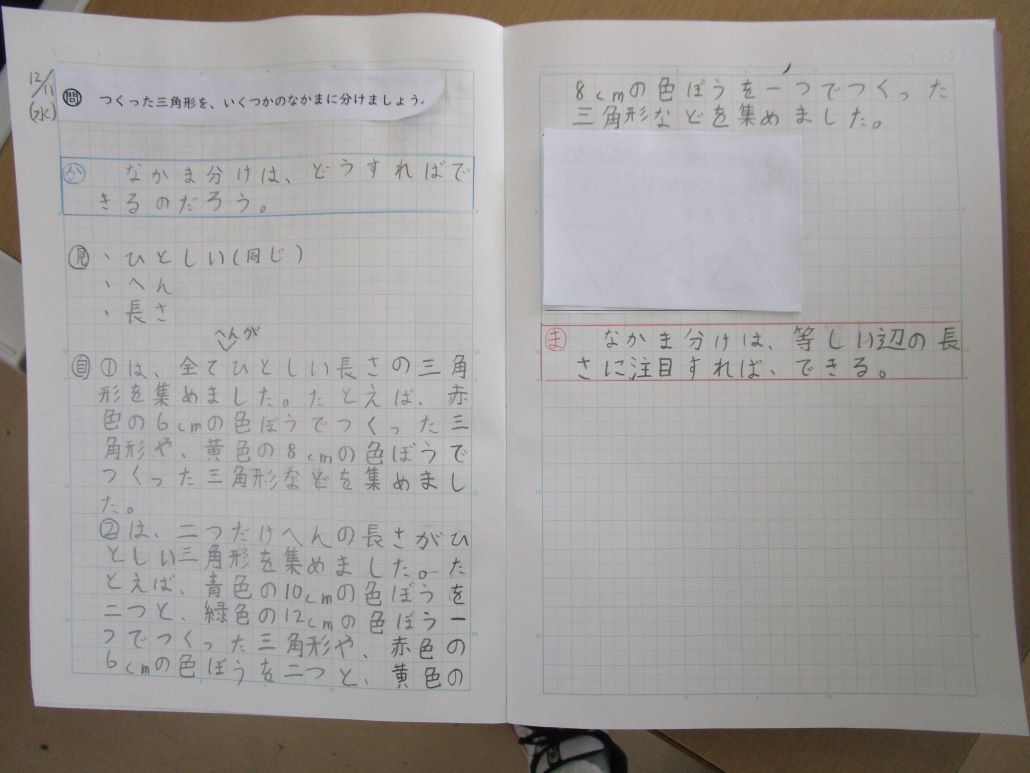 12/11
(水)
問 つくった三角形を、いくつかのなかまに分けましょう。
か なかま分けは、どうすればで
きるのだろう。
見 ・ひとしい(同じ)
・へん
・長さ
へんが
自 ①は、全てひとしい長さの三角
形を集めました。たとえば、赤
色の6cmの色ぼうでつくった三
角形や、黄色の8cmの色ぼうで
つくった三角形などを集めまし
た。
②は、二つだけへんの長さがひ
としい三角形を集めました。た
とえば、青色の10cmの色ぼうを
二つと、緑色の12cmの色ぼう一
つでつくった三角形や、赤色の
6cmの色ぼうを二つと、黄色の
8cmの色ぼうを一つでつくった
三角形などを集めました。
ま なかま分けは、等しい辺の長
さに注目すれば、できる。